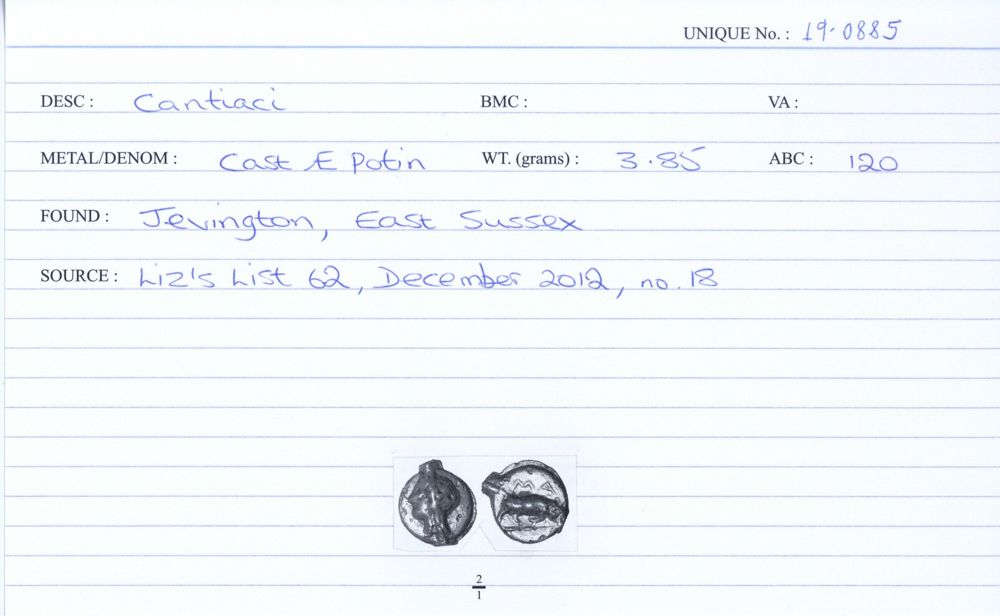 UNIQUE No. : 19-0885
DESC : Cantiaci BMC : VA :
METAL/DENOM : Cast Æ Potin WT. (grams) : 3.85 ABC : 120
FOUND : Jevington, East Sussex
SOURCE : Liz's List 62, December 2012, no. 18
2
1